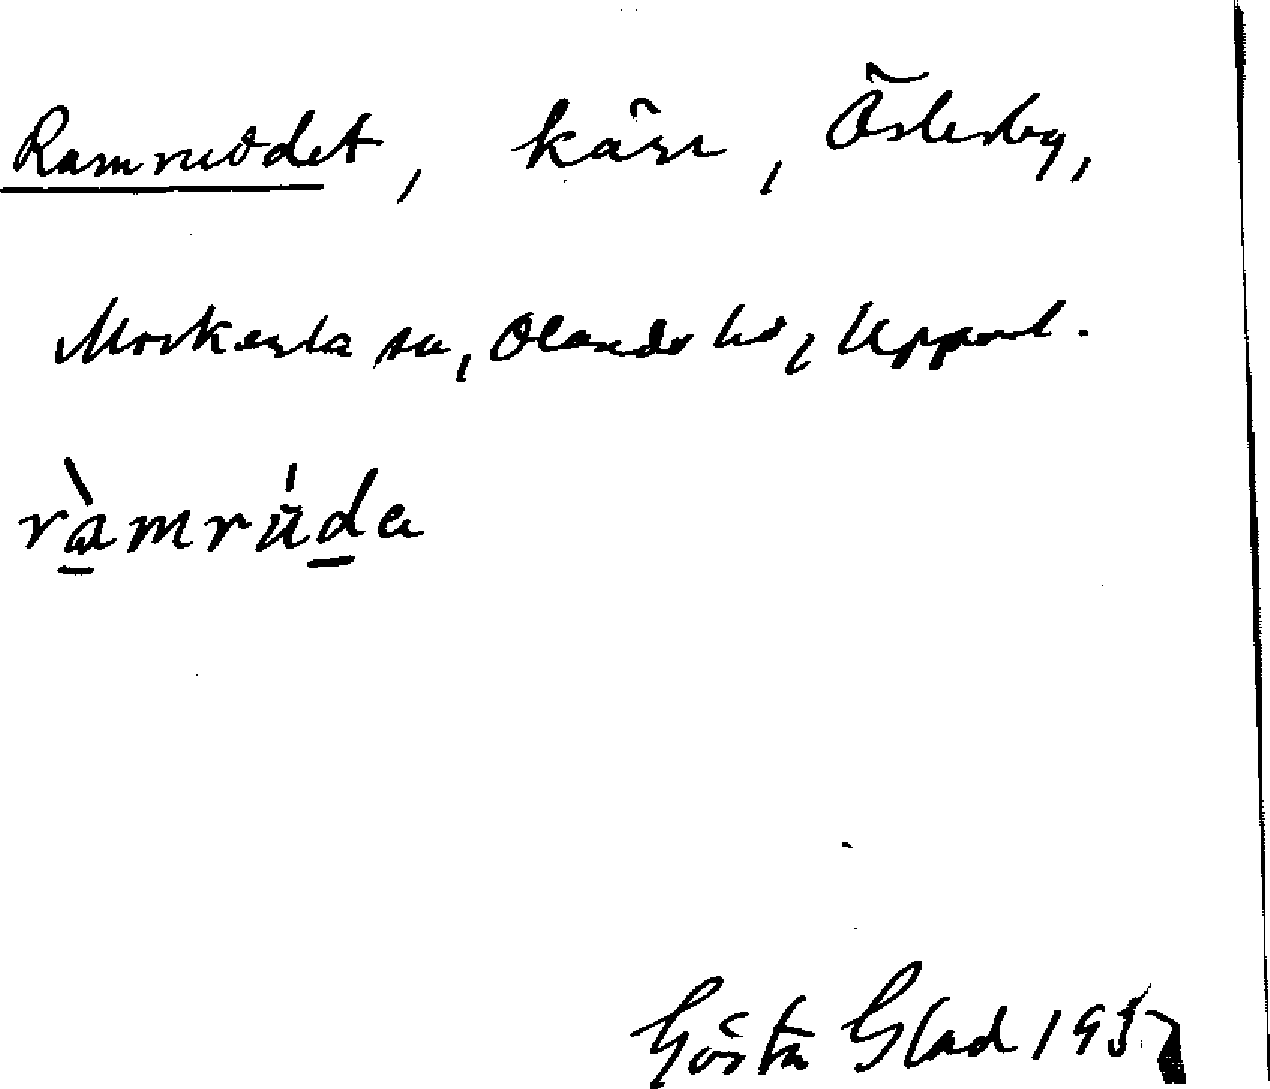 Ramruddet, kärr, Österby,
Morkarla sn, Olands hd, Uppland.
ràmrúda
Gösta Glad 1937